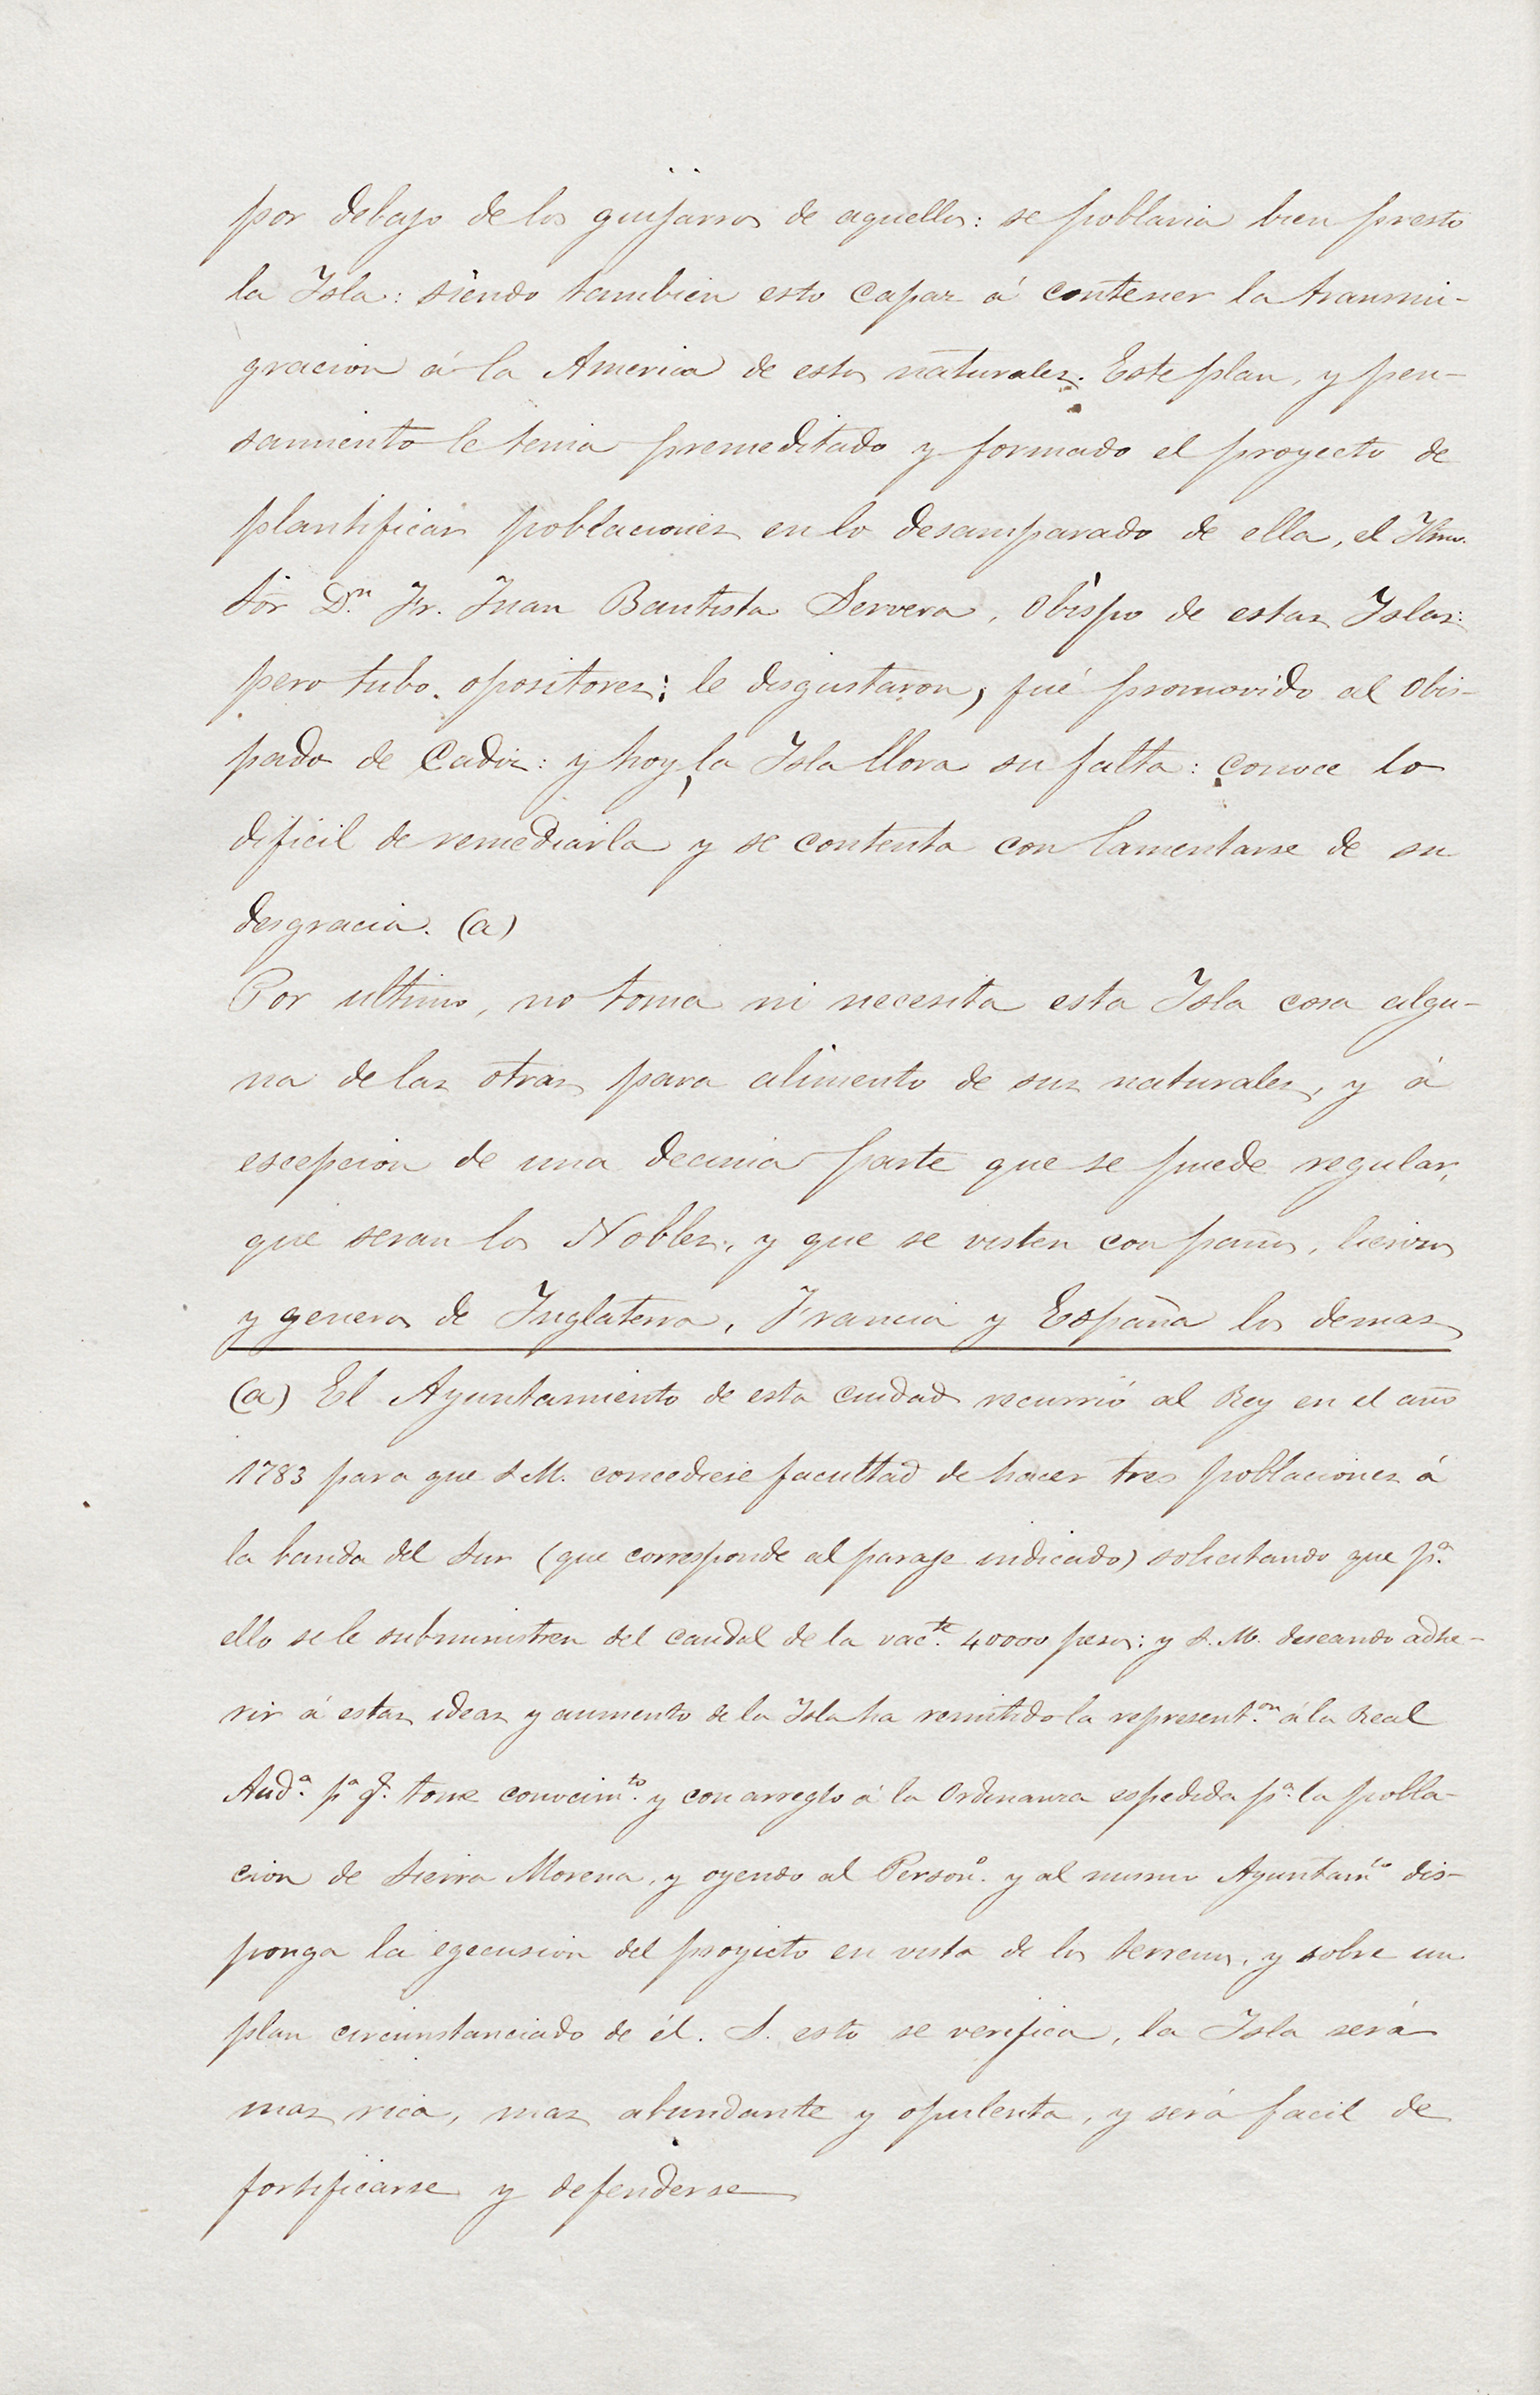 por debajo de los guijarros de aquellos: se poblaria bien presto
la Isla: siendo tambien esto capaz á contener la transmi-
gracion á la America de estos naturales. Este plan, y pen-
samiento le tenia premeditado y formado el proyecto de
plantificar poblaciones en lo desamparado de ella, el Iltmo.
Sör D.ⁿ Fr. Juan Bautista Servera, Obispo de estas Islas:
pero tubo opositores; le disgustaron, fué promovido al Obis-
pado de Cadiz: y hoy, la Isla llora su falta: conoce lo
dificil de remediarla y se contenta con lamentarse de su
desgracia. (a)
Por ultimo, no toma ni necesita esta Isla cosa algu-
na de las otras para alimento de sus naturales, y á
escepcion de una decima parte que se puede regular,
que seran los Nobles, y que se visten con paños, lienzos
y generos de Inglaterra, Francia y España los demas
(a) El Ayuntamiento de esta ciudad recurrió al Rey en el año
1783 para que S.M. concediese facultad de hacer tres poblaciones á
la banda del Sur (que corresponde al paraje indicado) solicitando que p.ᵃ
ello se le subministren del caudal de la vac.ᵗᵉ 40000 pesos: y S. M. deseando adhe-
rir á estas ideas y aumento de la Isla ha remitido la represent.ᵒⁿ á la Real
Aud.ᵃ p.ᵃ q.ᵉ tome conocim.ᵗᵒ y con arreglo á la Ordenanza espedida p.ᵃ la pobla-
cion de Sierra Morena, y oyendo al Person.ᵒ y al mismo Ayuntam.ᵗᵒ dis-
ponga la egecusion del proyecto en vista de los terrenos, y sobre un
plan circunstanciado de él. Si esto se verifica, la Isla será
mas rica, mas abundante y opulenta, y será facil de
fortificarse y defenderse